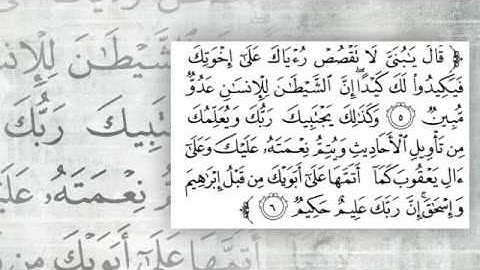 ﴿ قَالَ يَـٰبُنَىَّ لَا تَقْصُصْ رُءْيَاكَ عَلَىٰٓ إِخْوَتِكَ
فَيَكِيدُوا۟ لَكَ كَيْدًا ۖ إِنَّ ٱلشَّيْطَـٰنَ لِلْإِنسَـٰنِ عَدُوٌّ
مُّبِينٌ ﴿٥﴾ وَكَذَٰلِكَ يَجْتَبِيكَ رَبُّكَ وَيُعَلِّمُكَ
مِن تَأْوِيلِ ٱلْأَحَادِيثِ وَيُتِمُّ نِعْمَتَهُۥ عَلَيْكَ وَعَلَىٰٓ
ءَالِ يَعْقُوبَ كَمَآ أَتَمَّهَا عَلَىٰٓ أَبَوَيْكَ مِن قَبْلُ إِبْرَٰهِيمَ
وَإِسْحَـٰقَ ۚ إِنَّ رَبَّكَ عَلِيمٌ حَكِيمٌ ﴿٦﴾ ﴾
ٱلشَّيْطَـٰنَ لِلْإِنسَـٰنِ
يَجْتَبِيكَ رَبُّكَ
نِعْمَتَهُۥ عَلَيْكَ
أَتَمَّهَا عَلَىٰٓ أَبَوَيْكَ مِن